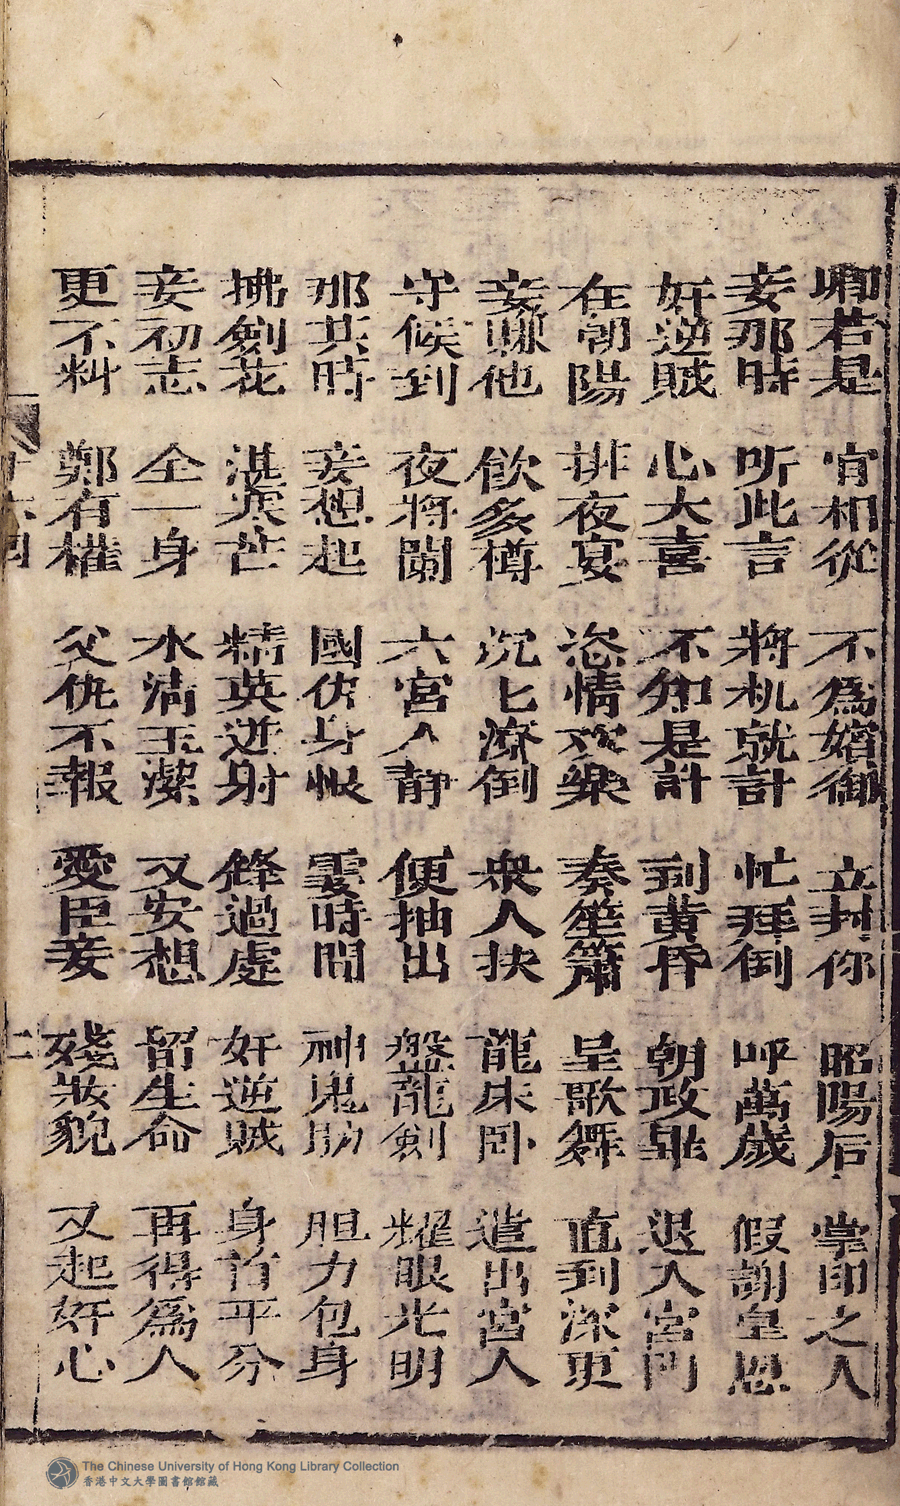 卿若是 肯相從 不爲嬪御 立封你 昭陽后 掌印之人
妾那時 听此言 將机就計 忙拜倒 呼萬歲 假謝皇恩
奸逆賊 心大喜 不知是計 到黄昏 朝政畢 退入宮門
在朝陽 排夜宴 恣情欢樂 奏笙簫 呈歌舞 直到深更
妾賺他 飲多樽 沉匕潦倒 衆人扶 龍床卧 遣出宮人
守候到 夜將闌 六宮人静 便抽出 盤龍劍 耀眼光明
那其時 妾想起 國仇身恨 霎時間 神鬼助 胆力包身
拂劍花 湛寒芒 精英迸射 鋒過處 奸逆賊 身首平分
妾初志 仝一身 水清玉潔 又安想 留生命 再得爲人
更不料 鄭有權 父仇不報 愛臣妾 殘妝貌 又起奸心
二
The Chinese University of Hong Kong Library Collection
香港中文大學圖書館館藏